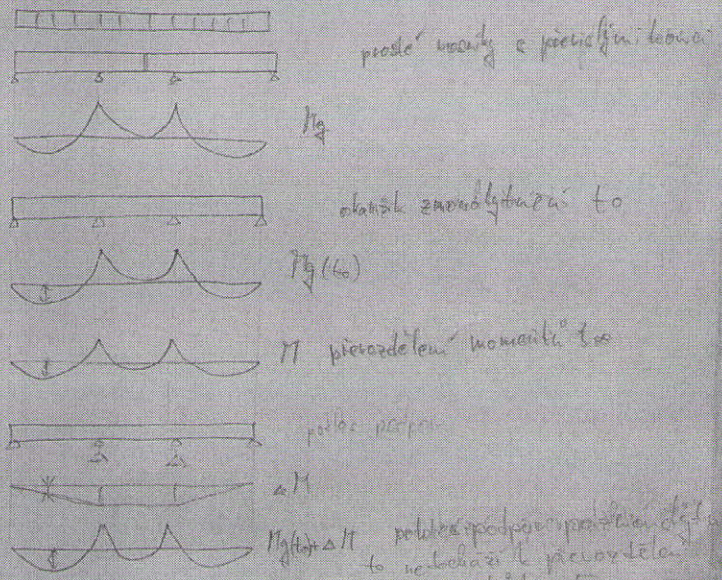 prosté nosníky s převislými konci
Mg
okamžik zmonolitnění t0
Mg(t0)
M převozdělení momentů t∞
pokles podpor
ΔM
Mg(t0)+ΔM pokles podpor
to nedochází k převozdělení